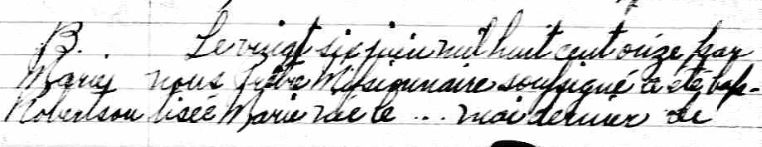 B. Le vingt six juin mil huit cent onze par
Marie nous prêtre Missionnaire soussigné a été bap-
Robertson tisée Marie née le ... mai dernier de